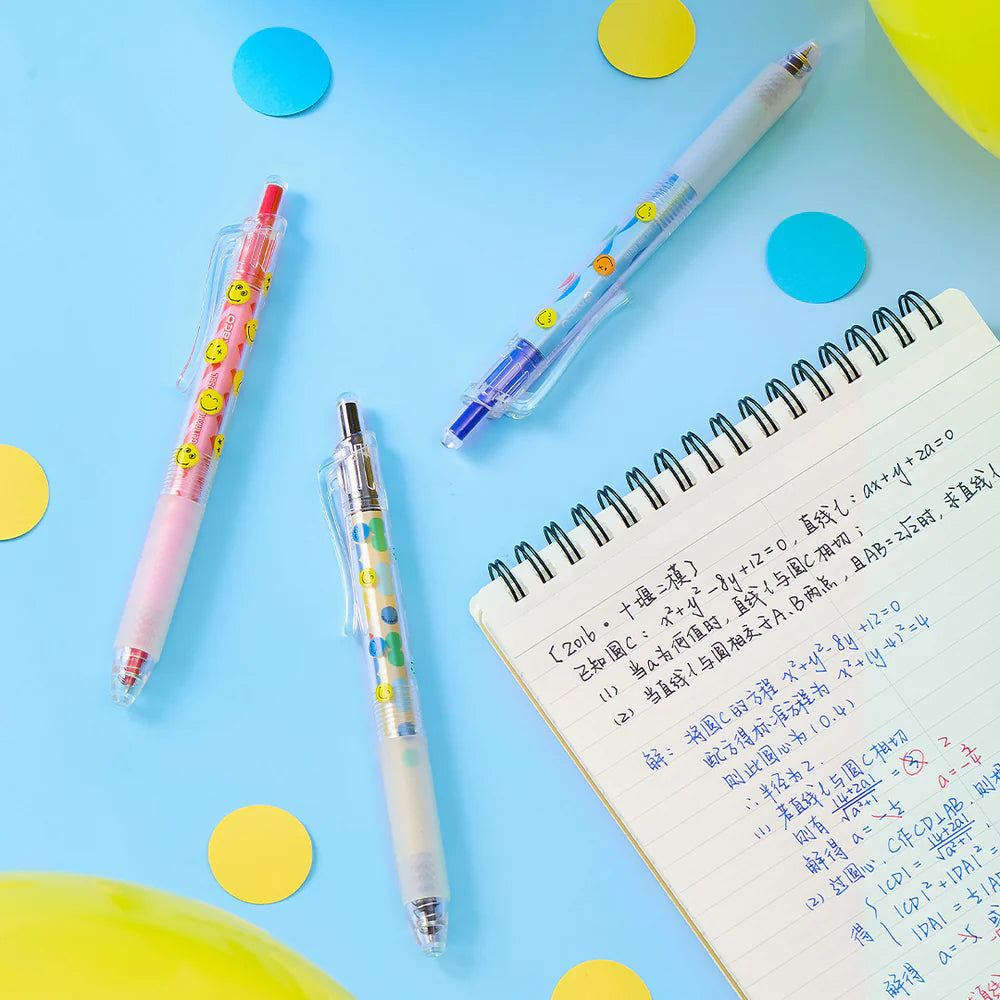 {2016·十堰二模}
已知圆C：x²+y²-8y+12=0，直线l：ax+y+2a=0
(1) 当a为何值时，直线l与圆C相切；
(2) 当直线l与圆相交于A.B两点，且AB=2√2时，求直线l
解：将圆C的方程 x²+y²-8y+12=0
配方得标准方程为 x²+(y-4)²=4
则此圆心为(0.4)
∴半径为2.
(1) 若直线l与圆C相切
则有 |4+2a|/√a²+1 = 3 2
解得 a= a=-3/4
(2) 过圆心C作CD⊥AB，则
|CD| = |4+2a|/√a²+1，
|CD|²+|DA|²=
得 |DA| = ½|AB
解得 a=